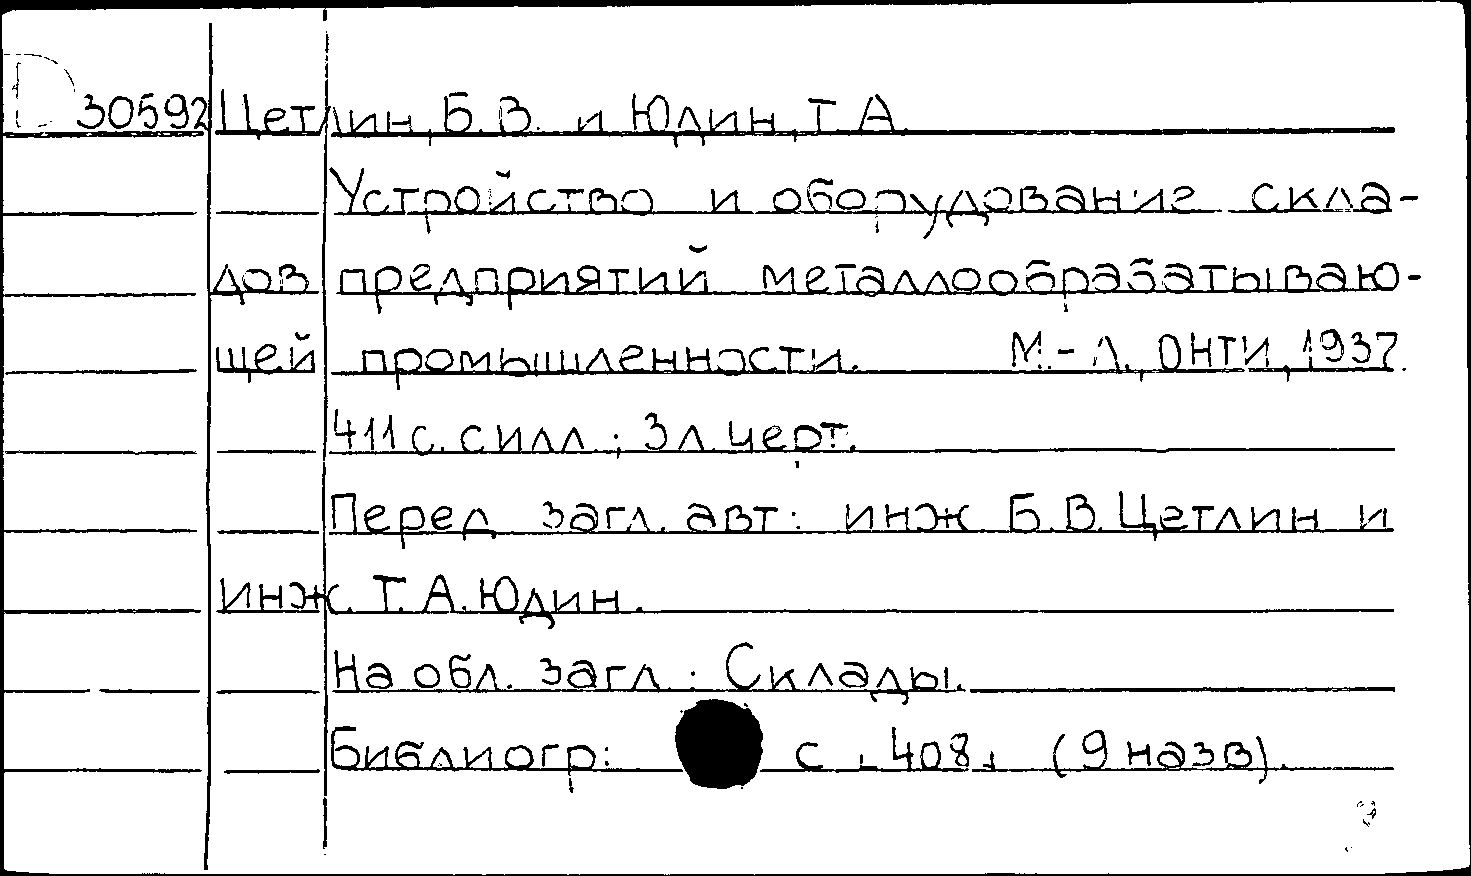 D 30592 Цетлин, Б. В. и Юдин, Т. А.
Устройство и оборудование скла-
дов предприятий металлообрабатываю-
щей промышленности. М.-Л., ОНТИ, 1937.
411 с. с илл.; 3 л. черт.
Перед загл. авт: инж Б. В. Цетлин и
инж. Т. А. Юдин.
На обл. загл: Склады.
Библиогр: с ⌊408⌋ (9 назв).